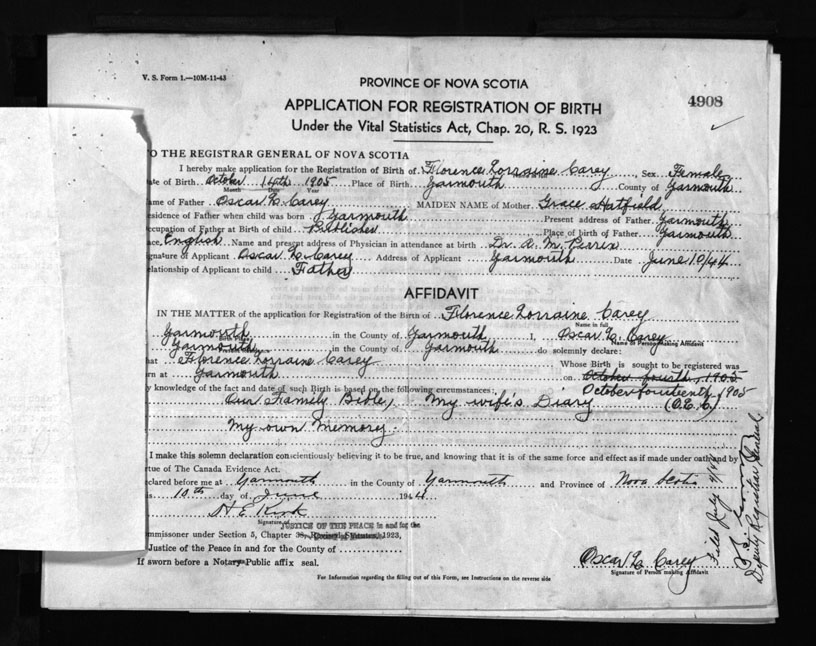 V. S. Form 1.—10M-11-43
PROVINCE OF NOVA SCOTIA
4908
APPLICATION FOR REGISTRATION OF BIRTH
Under the Vital Statistics Act, Chap. 20, R. S. 1923
TO THE REGISTRAR GENERAL OF NOVA SCOTIA
I hereby make application for the Registration of Birth of Florence Lorraine Carey, Sex Female
ate of Birth October 14th 1905 Place of Birth Yarmouth County of Yarmouth
Month Date Year
ame of Father Oscar E. Carey MAIDEN NAME of Mother Grace Hatfield
esidence of Father when child was born Yarmouth Present address of Father Yarmouth
ccupation of Father at Birth of child Publisher Place of birth of Father Yarmouth
ace English Name and present address of Physician in attendance at birth Dr. A. M. Perrin
ignature of Applicant Oscar E. Carey Address of Applicant Yarmouth Date June 10/44
elationship of Applicant to child Father
AFFIDAVIT
IN THE MATTER of the application for Registration of the Birth of Florence Lorraine Carey
Name in full
Yarmouth in the County of Yarmouth I, Oscar E. Carey
Name of Person Making Affidavit
Yarmouth in the County of Yarmouth do solemnly declare:
hat Florence Lorraine Carey Whose Birth is sought to be registered was
rn at Yarmouth on October fourth, 1905
October fourteenth, 1905
y knowledge of the fact and date of such Birth is based on the following circumstances:
Our Family Bible, My wife's Diary (O.E.C.)
My own Memory.
I make this solemn declaration conscientiously believing it to be true, and knowing that it is of the same force and effect as if made under oath and by
rtue of The Canada Evidence Act.
eclared before me at Yarmouth in the County of Yarmouth and Province of Nova Scotia
is 10th day of June 1944
H E Kirk
Signature of
JUSTICE OF THE PEACE in and for the
mmissioner under Section 3, Chapter 38, Revised Statutes, 1923,
Justice of the Peace in and for the County of
If sworn before a Notary Public affix seal.
Oscar E. Carey
Signature of Person making Affidavit
For Information regarding the filling out of this Form, see Instructions on the reverse side
Filed July
Deputy Registrar General.